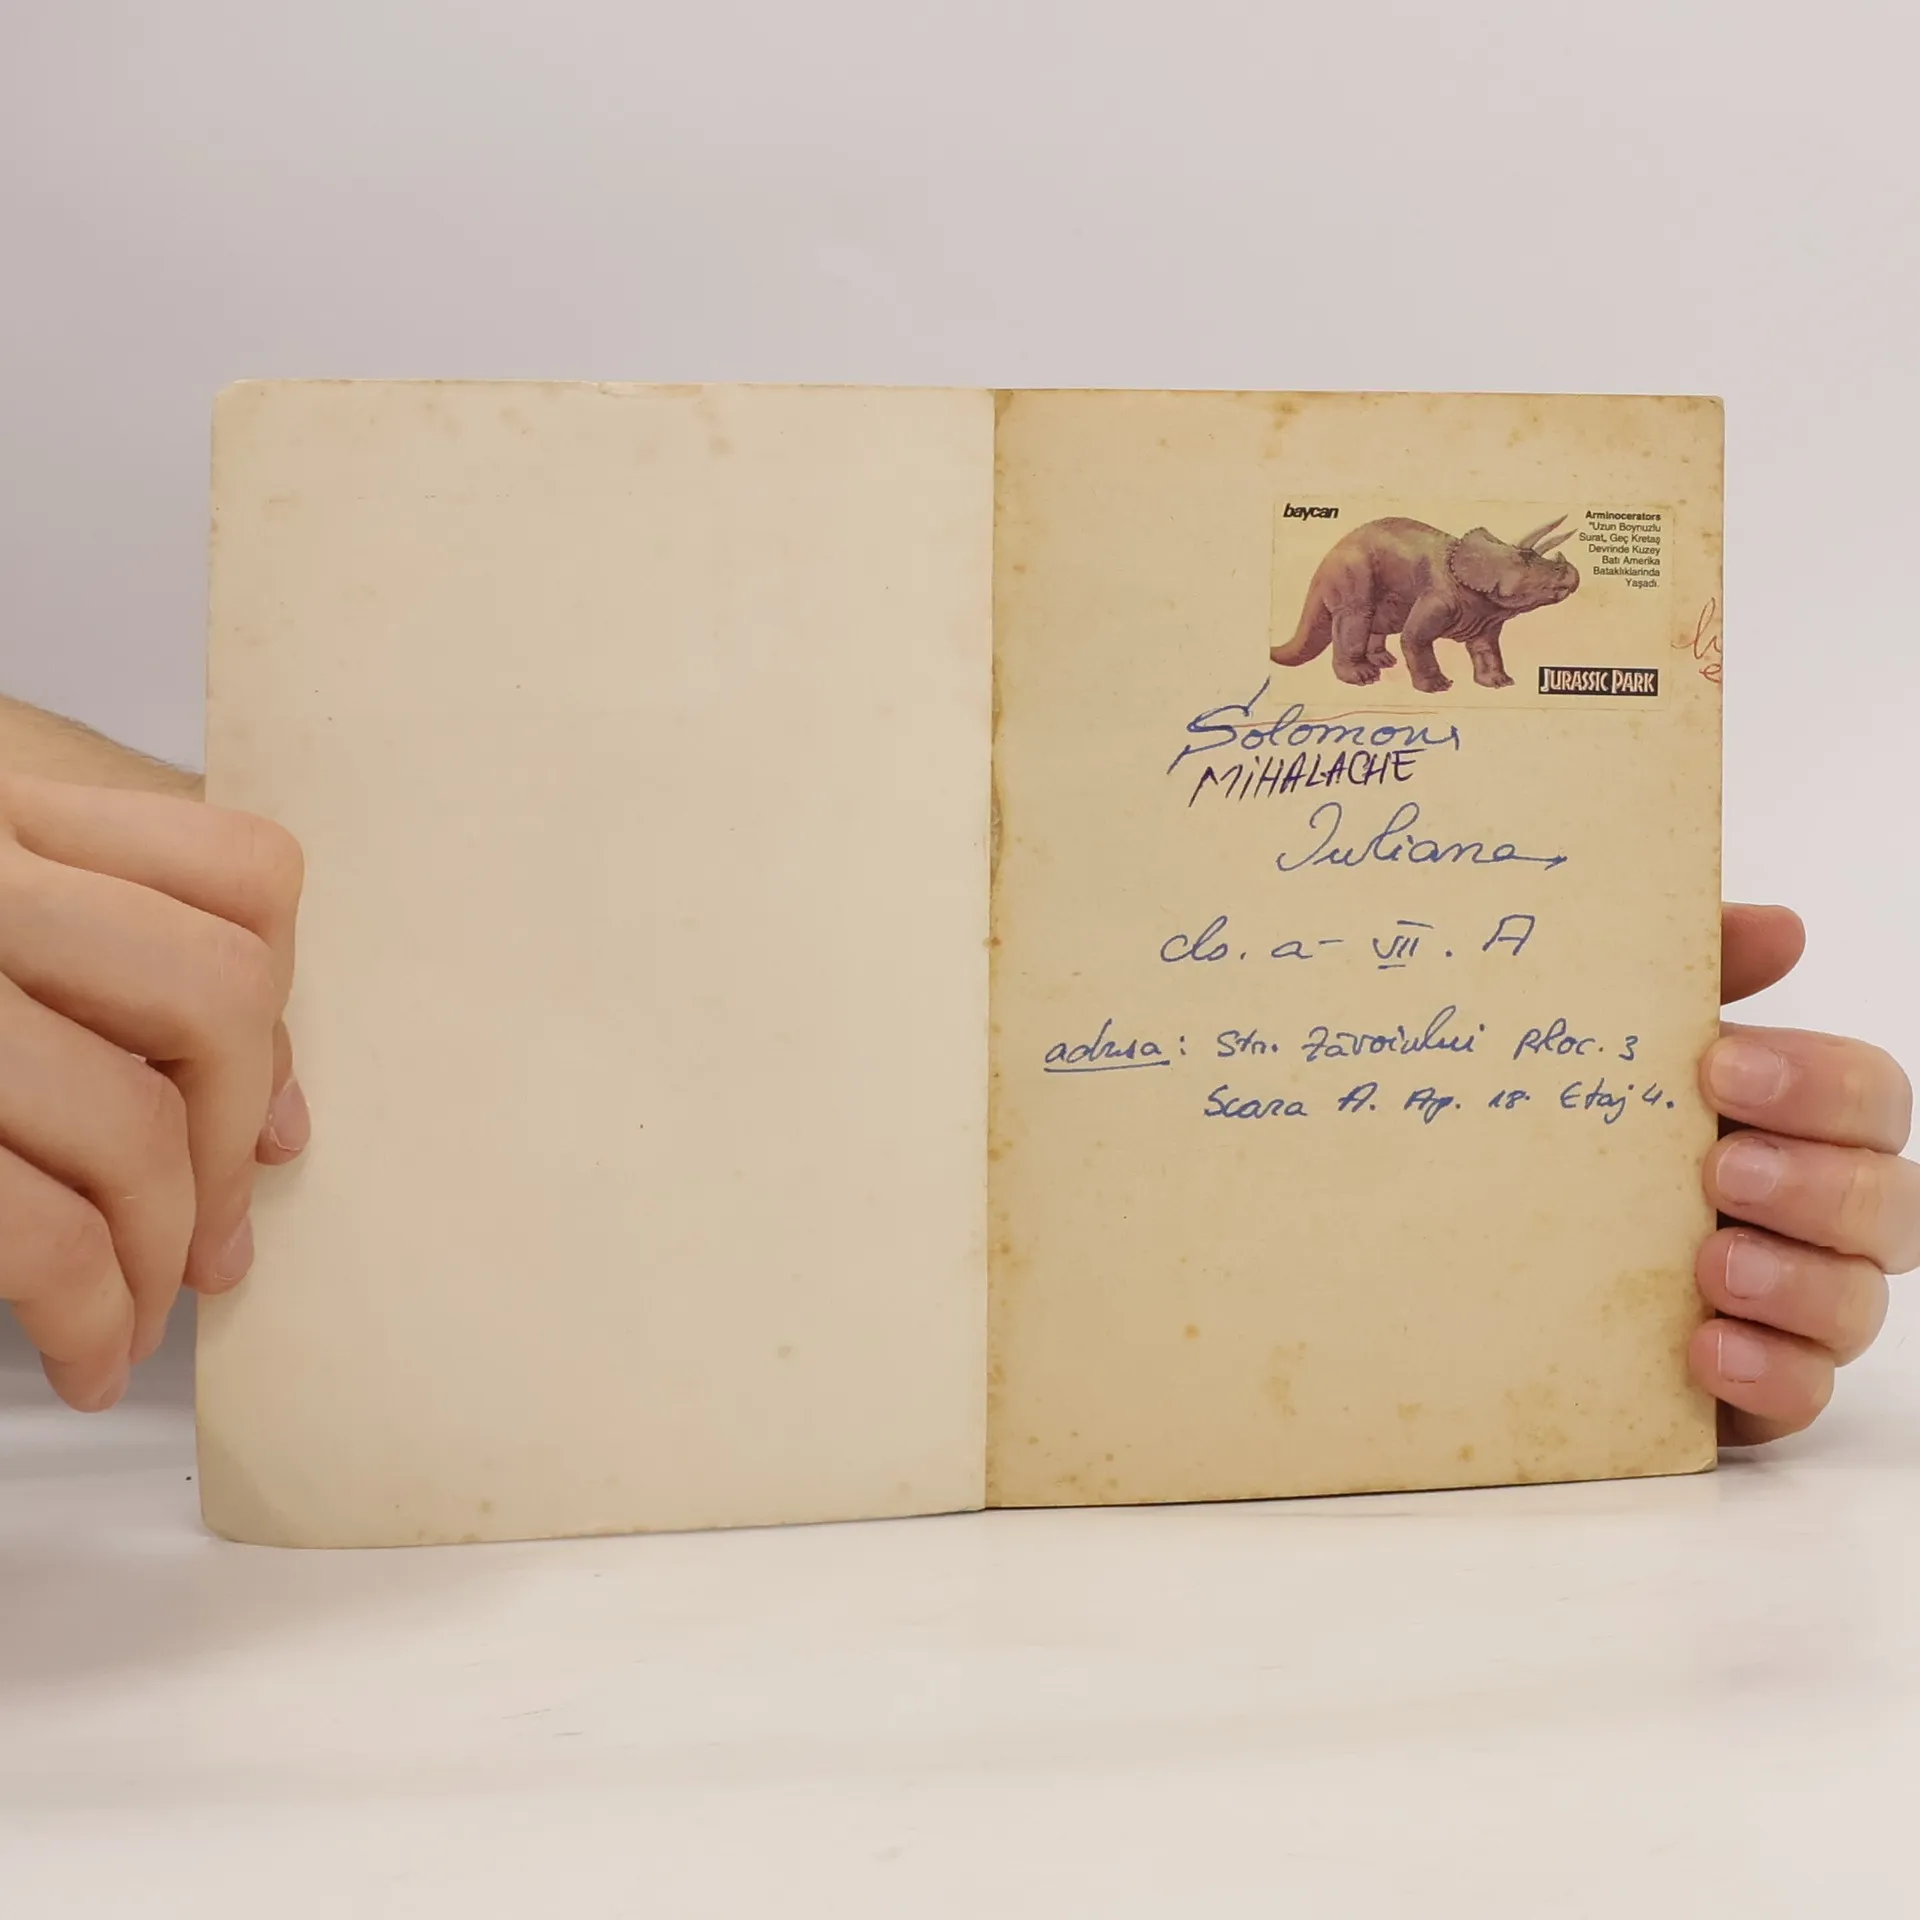 baycan
Arminocerators
"Uzun Boynuzlu
Surat, Geç Kretaş
Devrinde Kuzey
Batı Amerika
Bataklıklarında
Yaşadı.
JURASSIC PARK
Solomon
MIHALACHE
Iuliana
cls. a- VII. A
adresa: Str. Zăvoiului Bloc. 3
Scara A. Ap. 18. Etaj 4.